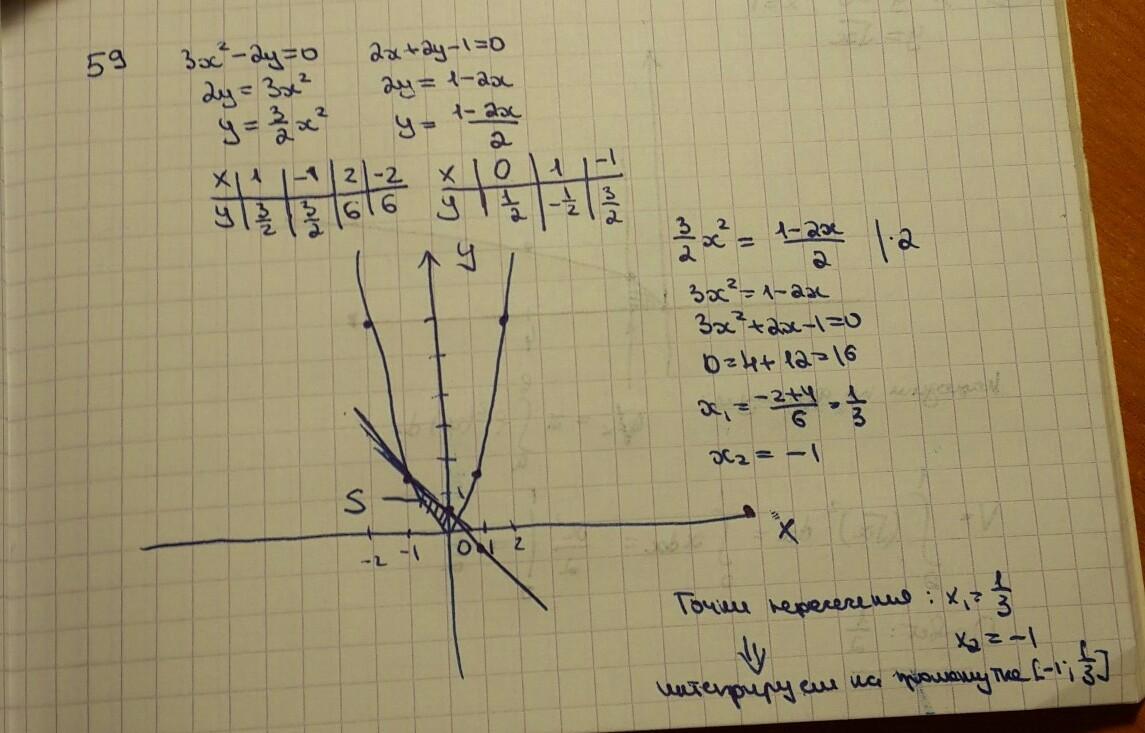 59
3x² - 2y = 0
2y = 3x²
y = 3/2 x²
2x + 2y - 1 = 0
2y = 1 - 2x
y = (1 - 2x)/2
x | 1 | -1 | 2 | -2
y | 3/2 | 3/2 | 6 | 6
x | 0 | 1 | -1
y | 1/2 | -1/2 | 3/2
3/2 x² = (1 - 2x)/2 | · 2
3x² = 1 - 2x
3x² + 2x - 1 = 0
D = 4 + 12 = 16
x₁ = (-2 + 4)/6 = 1/3
x₂ = -1
y
S
1
-2 -1 0 1 2
x
Точки пересечения: x₁ = 1/3
x₂ = -1
⇓
интегрируем на промежутке [-1; 1/3]